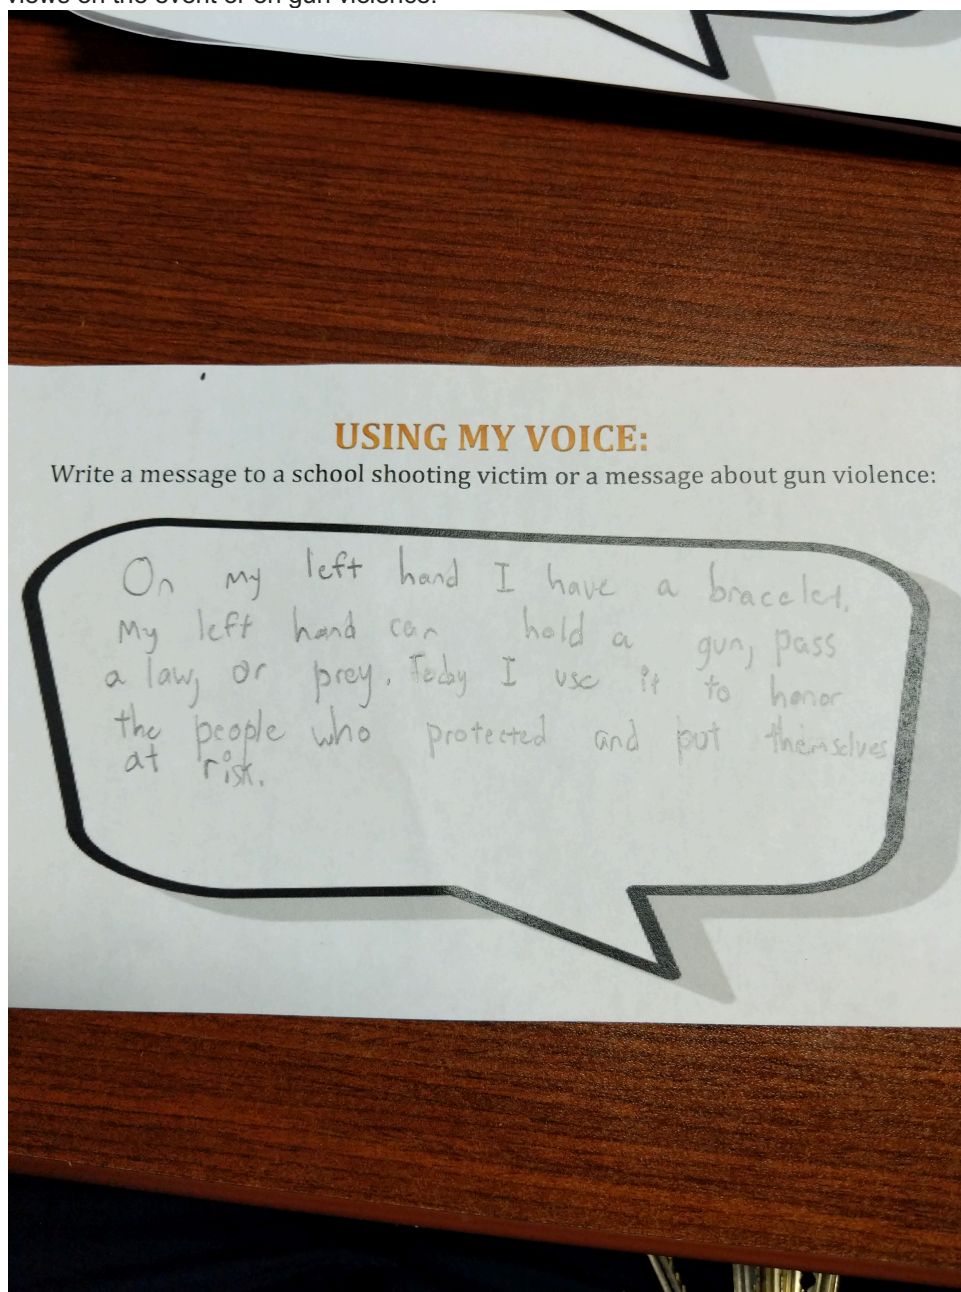 views on the event or on gun violence.
USING MY VOICE:
Write a message to a school shooting victim or a message about gun violence:
On my left hand I have a bracelet.
My left hand can hold a gun, pass
a law, or prey. Today I use it to honor
the people who protected and put themselves
at risk.